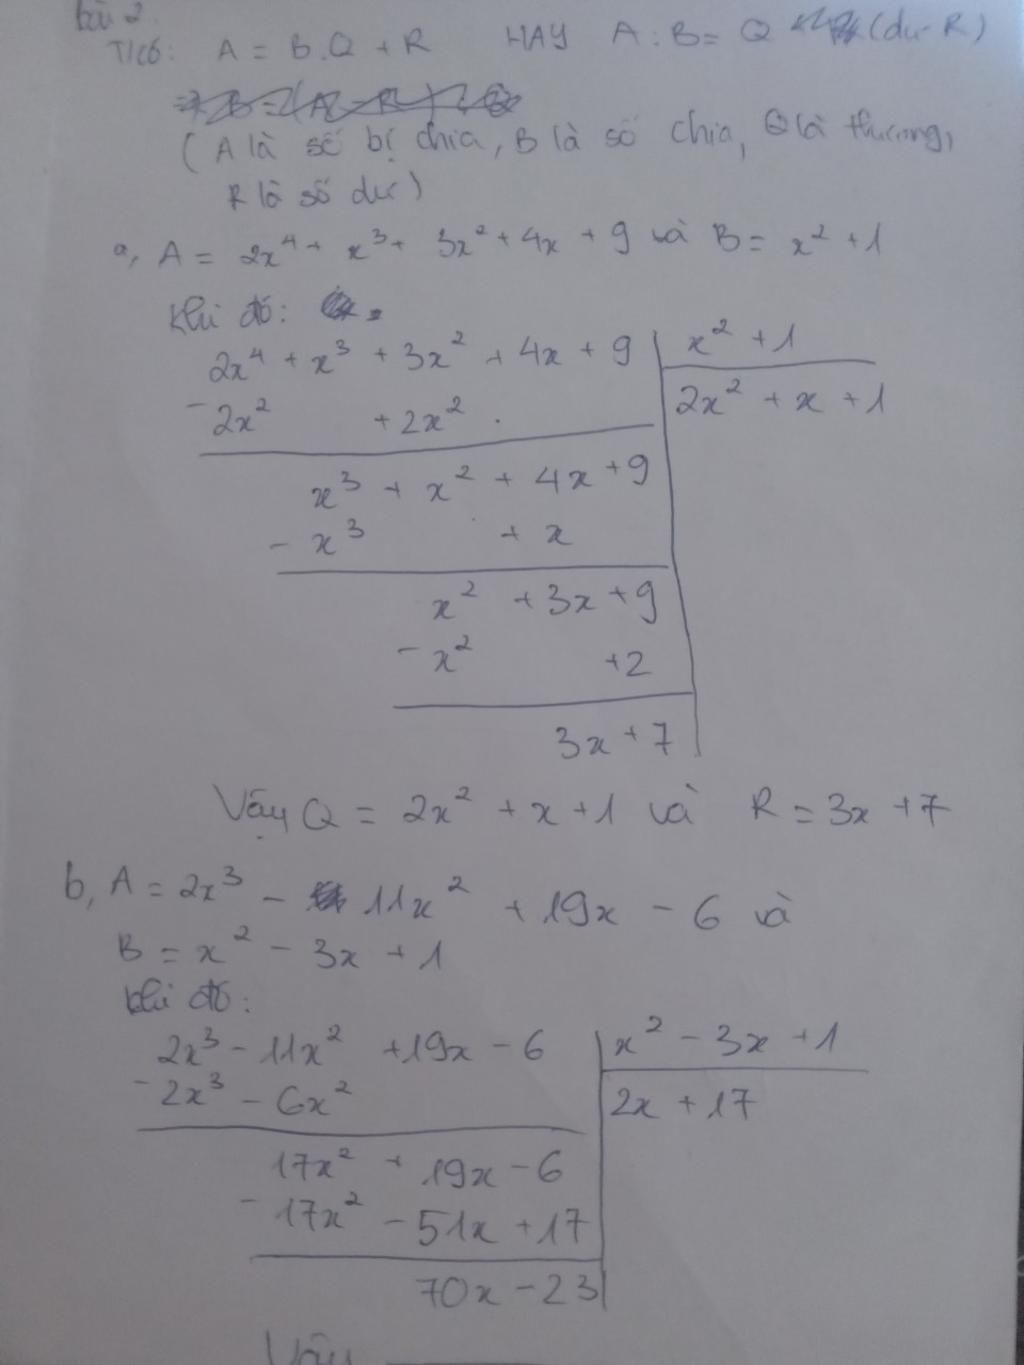 bài 2
T/có: A = B.Q + R HAY A : B = Q (dư R)
(A là số bị chia, B là số chia, Q là thương,
R là số dư)
a, A = 2x⁴ + x³ + 3x² + 4x + 9 và B = x² + 1
khi đó:
2x⁴ + x³ + 3x² + 4x + 9 | x² + 1
- 2x² + 2x² | 2x² + x + 1
x³ + x² + 4x + 9
- x³ + x
x² + 3x + 9
- x² + 2
3x + 7
Vậy Q = 2x² + x + 1 và R = 3x + 7
b, A = 2x³ - 11x² + 19x - 6 và
B = x² - 3x + 1
khi đó:
2x³ - 11x² + 19x - 6 | x² - 3x + 1
- 2x³ - 6x² | 2x + 17
17x² + 19x - 6
- 17x² - 51x + 17
70x - 23
Vậy